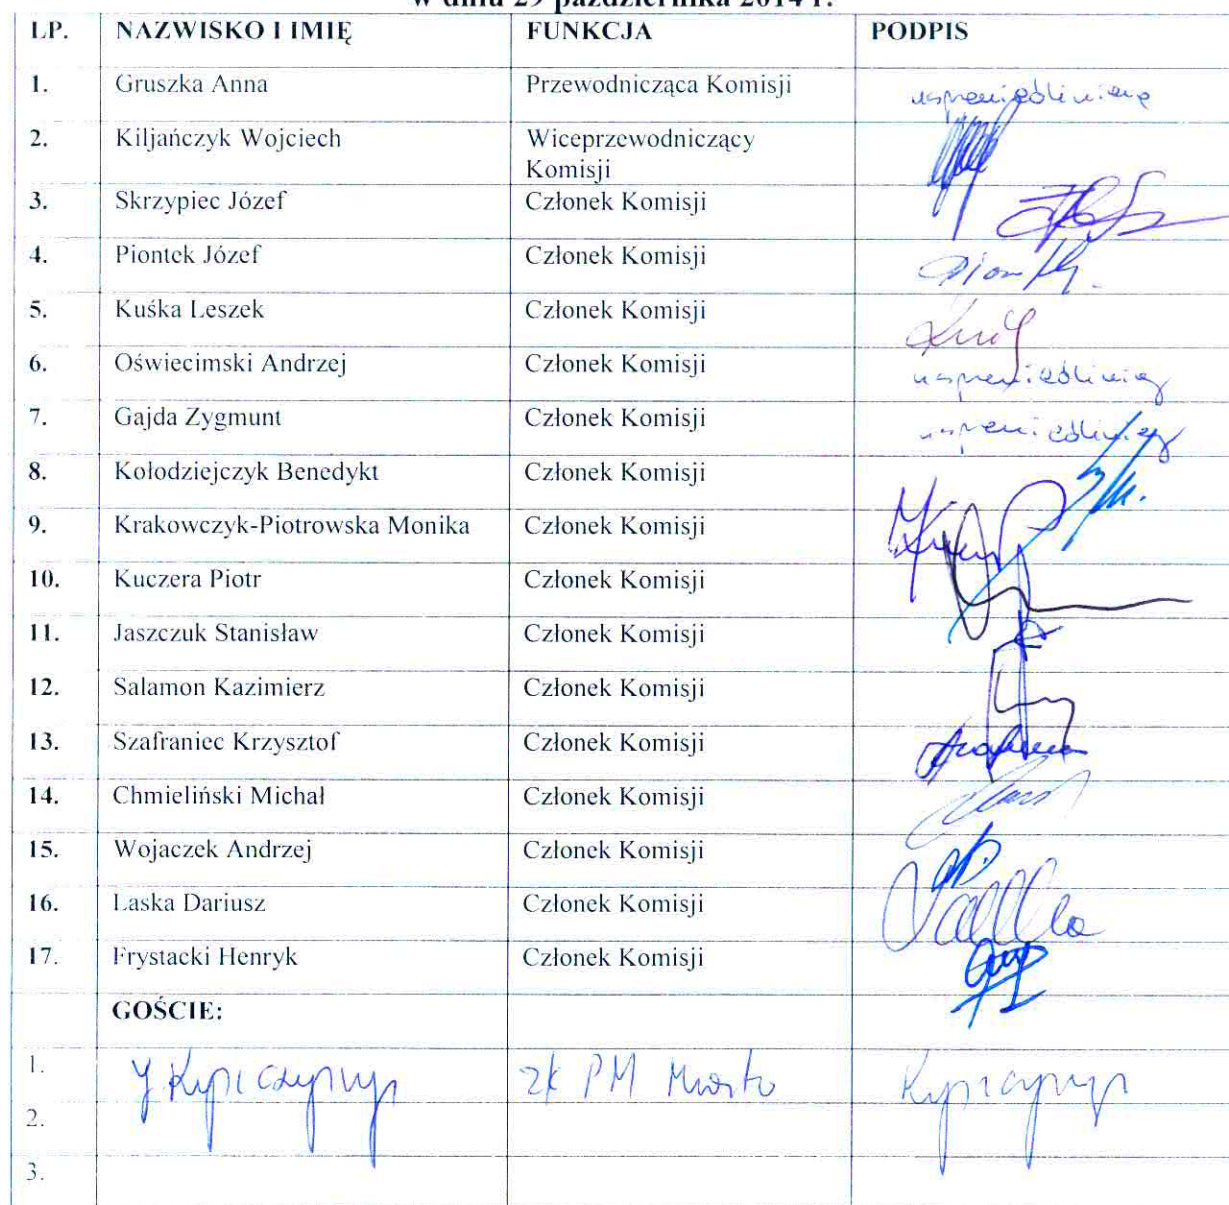 w dniu 29 października 2014 r.
LP. NAZWISKO I IMIĘ FUNKCJA PODPIS
1. Gruszka Anna Przewodnicząca Komisji
2. Kiljańczyk Wojciech Wiceprzewodniczący
Komisji
3. Skrzypiec Józef Członek Komisji
4. Piontek Józef Członek Komisji
5. Kuśka Leszek Członek Komisji
6. Oświecimski Andrzej Członek Komisji
7. Gajda Zygmunt Członek Komisji
8. Kołodziejczyk Benedykt Członek Komisji
9. Krakowczyk-Piotrowska Monika Członek Komisji
10. Kuczera Piotr Członek Komisji
11. Jaszczuk Stanisław Członek Komisji
12. Salamon Kazimierz Członek Komisji
13. Szafraniec Krzysztof Członek Komisji
14. Chmieliński Michał Członek Komisji
15. Wojaczek Andrzej Członek Komisji
16. Laska Dariusz Członek Komisji
17. Frystacki Henryk Członek Komisji
GOŚCIE:
1. PM
2.
3.